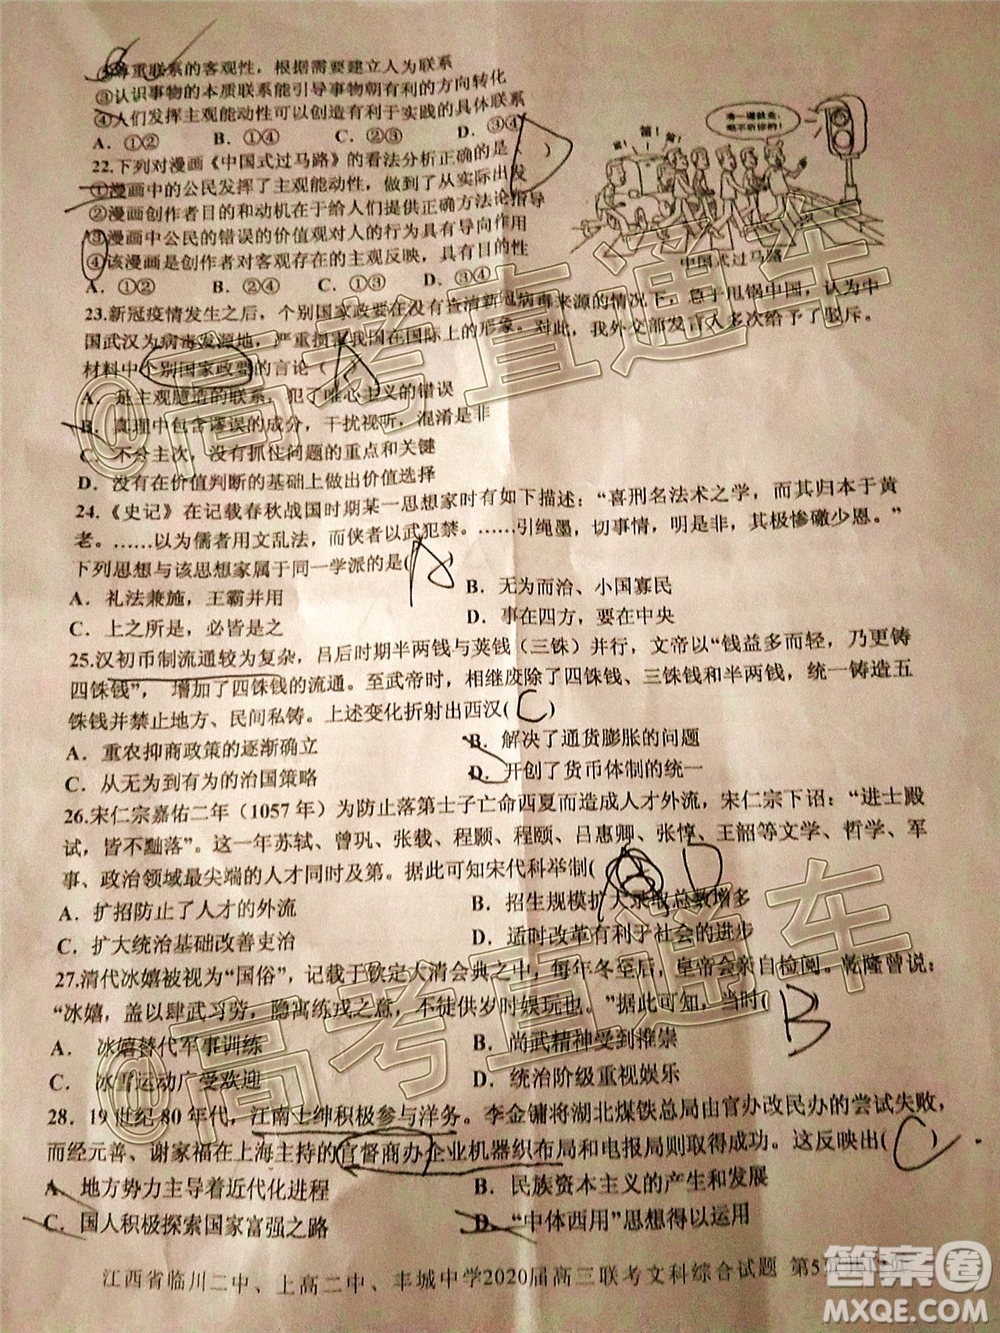 ②尊重联系的客观性，根据需要建立人为联系
③认识事物的本质联系能引导事物朝有利的方向转化
④人们发挥主观能动性可以创造有利于实践的具体联系
A．①② B．①④ C．②③ D．③④
22.下列对漫画《中国式过马路》的看法分析正确的是（ ）
①漫画中的公民发挥了主观能动性，做到了从实际出发
②漫画创作者目的和动机在于给人们提供正确方法论指导
③漫画中公民的错误的价值观对人的行为具有导向作用
④该漫画是创作者对客观存在的主观反映，具有目的性
A．①② B．①④ C．②③ D．③④
凑一撮就走，
中国式过马路
23.新冠疫情发生之后，个别国家政要在没有查清新冠病毒来源的情况下，急于甩锅中国，认为中
国武汉为病毒发源地，严重损害我国在国际上的形象。对此，我外交部发言人多次给予了驳斥。
材料中个别国家政要的言论（ ）
A．是主观臆造的联系，犯了唯心主义的错误
B．真理中包含谬误的成分，干扰视听，混淆是非
C．不分主次，没有抓住问题的重点和关键
D．没有在价值判断的基础上做出价值选择
24.《史记》在记载春秋战国时期某一思想家时有如下描述：“喜刑名法术之学，而其归本于黄
老。……以为儒者用文乱法，而侠者以武犯禁。……引绳墨，切事情，明是非，其极惨礉少恩。”
下列思想与该思想家属于同一学派的是( A )
A．礼法兼施，王霸并用 B．无为而治、小国寡民
C．上之所是，必皆是之 D．事在四方，要在中央
25.汉初币制流通较为复杂，吕后时期半两钱与荚钱（三铢）并行，文帝以“钱益多而轻，乃更铸
四铢钱”，增加了四铢钱的流通。至武帝时，相继废除了四铢钱、三铢钱和半两钱，统一铸造五
铢钱并禁止地方、民间私铸。上述变化折射出西汉( C )
A．重农抑商政策的逐渐确立 B．解决了通货膨胀的问题
C．从无为到有为的治国策略 D．开创了货币体制的统一
26.宋仁宗嘉佑二年（1057 年）为防止落第士子亡命西夏而造成人才外流，宋仁宗下诏：“进士殿
试，皆不黜落”。这一年苏轼、曾巩、张载、程颢、程颐、吕惠卿、张惇、王韶等文学、哲学、军
事、政治领域最尖端的人才同时及第。据此可知宋代科举制( D
A．扩招防止了人才的外流 B．招生规模扩大录取总数增多
C．扩大统治基础改善吏治 D．适时改革有利于社会的进步
27.清代冰嬉被视为“国俗”，记载于钦定大清会典之中，每年冬至后，皇帝会亲自检阅。乾隆曾说：
“冰嬉，盖以肆武习劳，隐寓练戎之意，不徒供岁时娱玩也。”据此可知，当时( B )
A． 冰嬉替代军事训练 B．尚武精神受到推崇
C． 冰雪运动广受欢迎 D．统治阶级重视娱乐
28．19 世纪 80 年代，江南士绅积极参与洋务。李金镛将湖北煤铁总局由官办改民办的尝试失败，
而经元善、谢家福在上海主持的官督商办企业机器织布局和电报局则取得成功。这反映出( C )
A．地方势力主导着近代化进程 B．民族资本主义的产生和发展
C．国人积极探索国家富强之路 D．“中体西用”思想得以运用
江西省临川二中、上高二中、丰城中学2020届高三联考文科综合试题 第5
@高考直通车
@高考直通车
答案圈
MXQE.COM